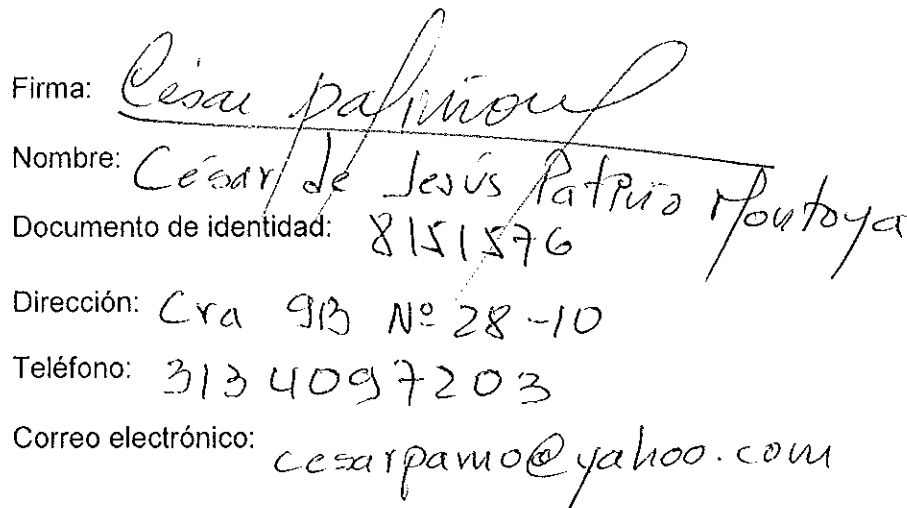 Firma: César Patiño M
Nombre: César de Jesús Patiño Montoya
Documento de identidad: 8151576
Dirección: Cra 9B Nº 28-10
Teléfono: 3134097203
Correo electrónico: cesarpamo@yahoo.com